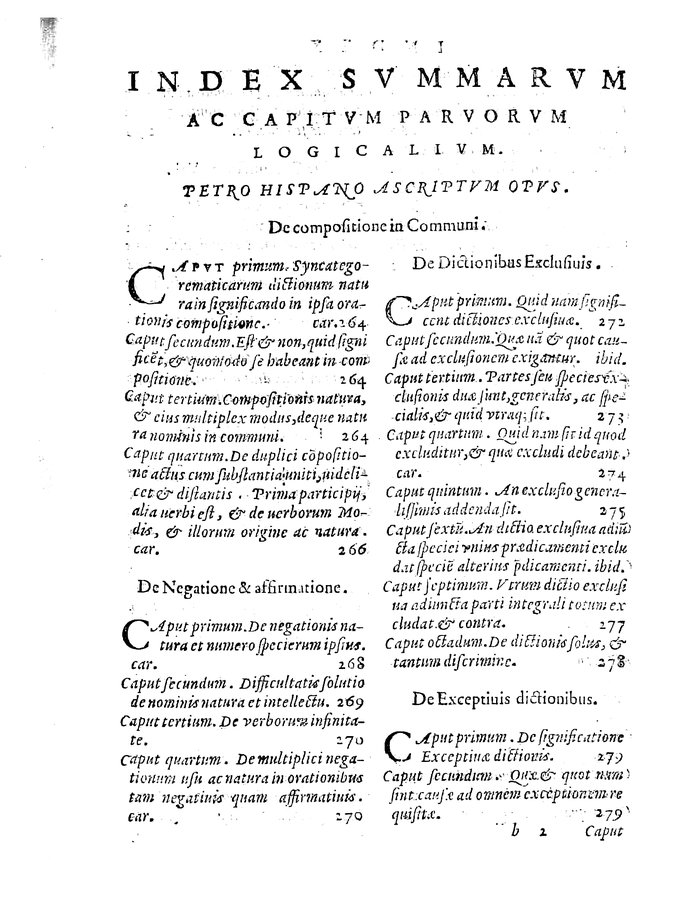 INDEX SVMMARVM
AC CAPITVM PARVORVM
LOGICALIVM.
PETRO HISPANO ASCRIPTVM OPVS.
De compositione in Communi.
CAPVT primum. Syncatego-
rematicarum dictionum natu
ra in significando in ipsa ora-
tionis compositione. car. 264
Caput secundum. Est & non, quid signi
ficēt, & quomodo se habeant in com
positione. 264
Caput tertium. Compositionis natura,
& eius multiplex modus, deque natu
ra nominis in communi. 264
Caput quartum. De duplici cōpositio-
ne actus cum substantia uniti, uideli-
cet & distantis . Prima participij,
alia uerbi est, & de uerborum Mo-
dis, & illorum origine ac natura .
car. 266
De Negatione & affirmatione.
CAput primum. De negationis na-
tura et numero specierum ipsius.
car. 268
Caput secundum . Difficultatis solutio
de nominis natura et intellectu. 269
Caput tertium. De verborum infinita-
te. 270
Caput quartum. De multiplici nega-
tionum usu ac natura in orationibus
tam negatiuis quam affirmatiuis .
car. 270
De Dictionibus Exclusiuis .
CAput primum. Quid nam signifi-
cent dictiones exclusiuæ. 272
Caput secundum. Quæ uā & quot cau-
sæ ad exclusionem exigantur. ibid.
Caput tertium. Partes seu species ex-
clusionis duæ sunt, generalis, ac spe-
cialis, & quid vtraq; sit. 273
Caput quartum . Quid nam sit id quod
excluditur, & quæ excludi debeant.
car. 274
Caput quintum . An exclusio genera-
lissimis addenda sit. 275
Caput sextū. An dictio exclusiua adiū
cta speciei vnius prædicamenti exclu
dat speciē alterius p̄dicamenti. ibid.
Caput septimum. Vtrum dictio exclusi
ua adiuncta parti integrali totum ex
cludat & contra. 277
Caput octadum. De dictionis solus, &
tantum discrimine. 278
De Exceptiuis dictionibus.
CAput primum . De significatione
Exceptiuæ dictionis. 279
Caput secundum . Quæ & quot nam
sint causæ ad omnem exceptionem re
quisitæ. 279
b 2 Caput